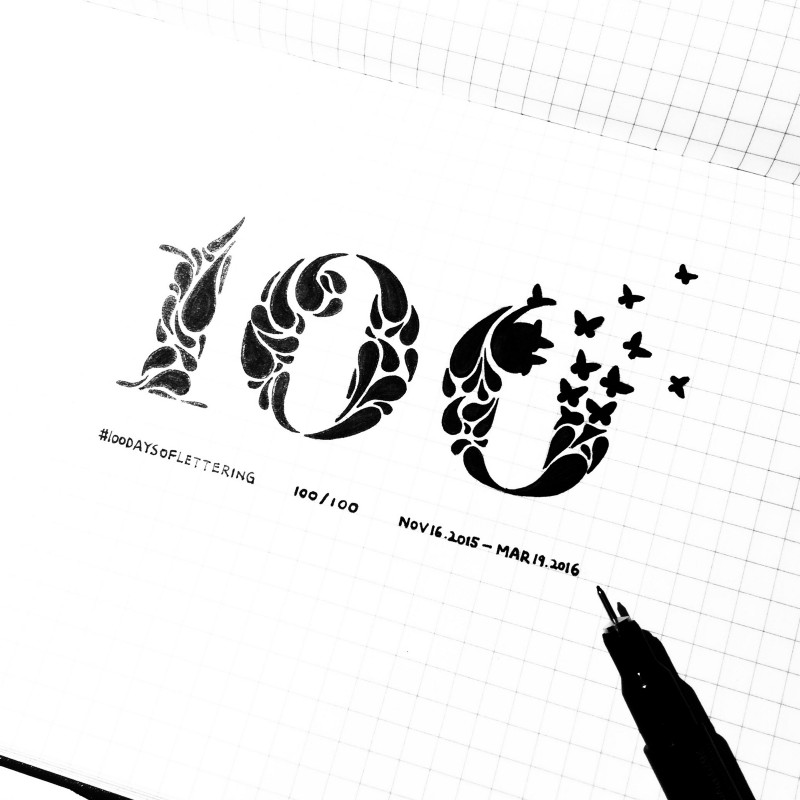 100
#100DAYSOFLETTERING 100/100 NOV 16.2015 – MAR 19.2016